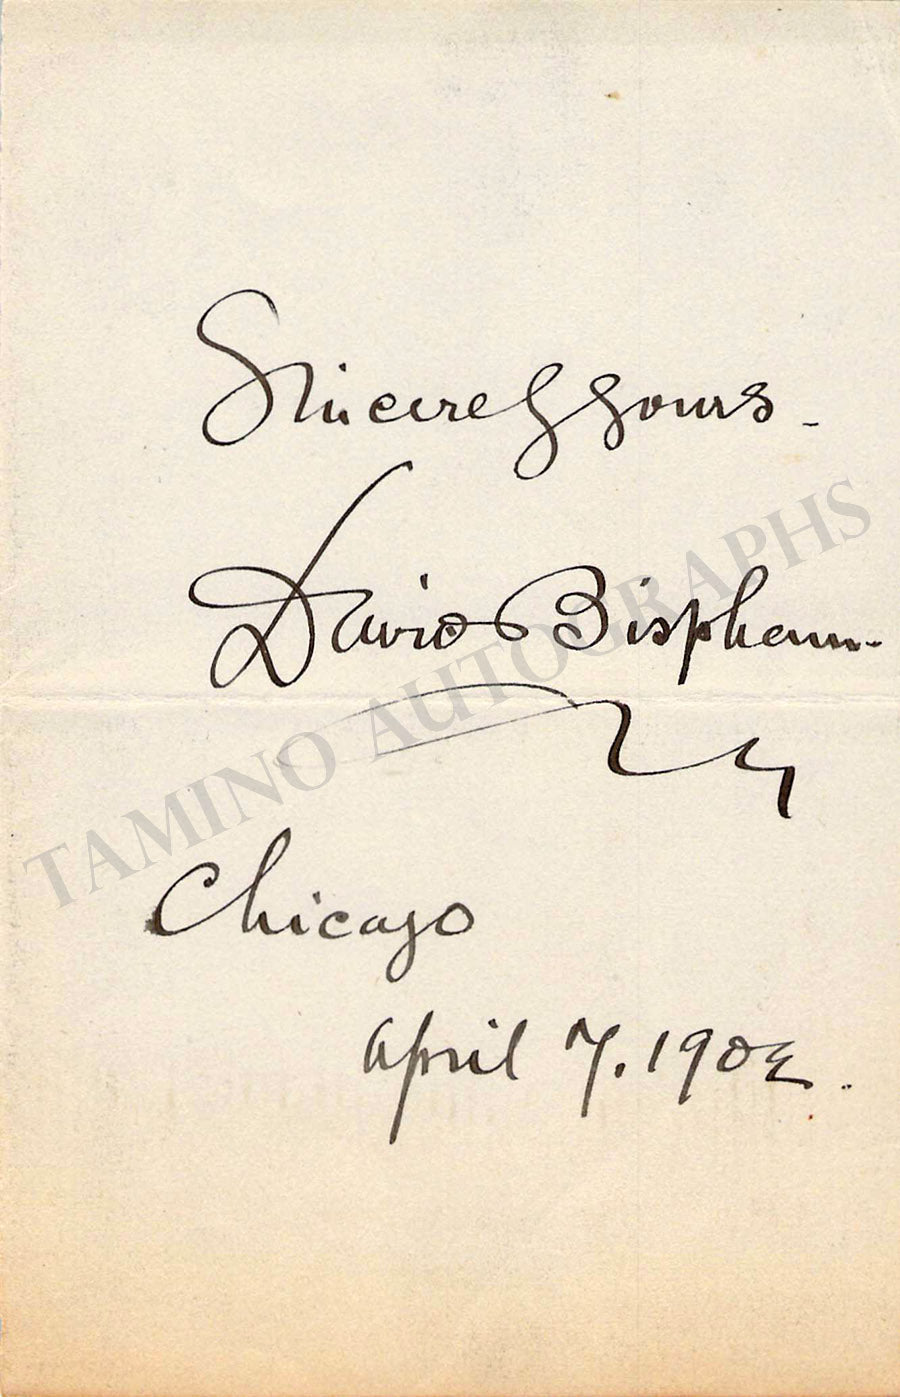 Sincerely yours -
David Bispham -
TAMINO AUTOGRAPHS
Chicago
April 7. 1902.